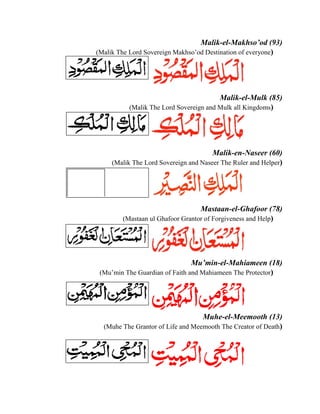 Malik-el-Makhso’od (93)
(Malik The Lord Sovereign Makhso’od Destination of everyone)
الْمَلِكِ الْمَقْصُوْدِ الْمَلِكِ الْمَقْصُوْدِ
Malik-el-Mulk (85)
(Malik The Lord Sovereign and Mulk all Kingdoms)
مَالِكِ الْمُلْكِ مَالِكِ الْمُلْكِ
Malik-en-Naseer (60)
(Malik The Lord Sovereign and Naseer The Ruler and Helper)
الْمَلِكِ النَّصِيْرِ
Mastaan-el-Ghafoor (78)
(Mastaan ul Ghafoor Grantor of Forgiveness and Help)
الْمُسْتَعَانِ لْغَفُوْرِ الْمُسْتَعَانِ لْغَفُوْرِ
Mu’min-el-Mahiameen (18)
(Mu’min The Guardian of Faith and Mahiameen The Protector)
الْمُؤْمِنِ الْمُهَيْمِنِ الْمُؤْمِنِ الْمُهَيْمِنِ
Muhe-el-Meemooth (13)
(Muhe The Grantor of Life and Meemooth The Creator of Death)
الْمُحْيِ الْمُمِيْتِ الْمُحْيِ الْمُمِيْتِ